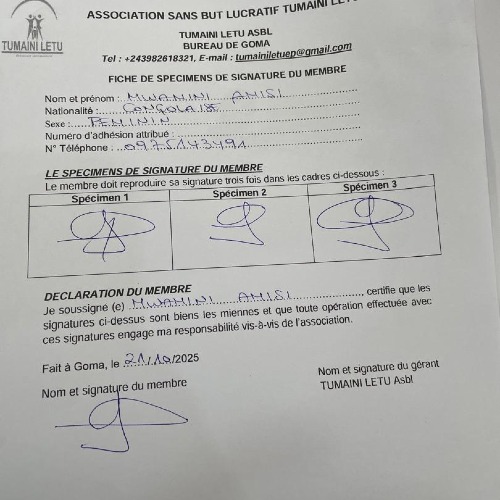 ASSOCIATION SANS BUT LUCRATIF TUMAINI LETU
TUMAINI LETU
TUMAINI LETU ASBL
BUREAU DE GOMA
Tel : +243982618321, E-mail : tumainiletuep@gmail.com
FICHE DE SPECIMENS DE SIGNATURE DU MEMBRE
Nom et prénom : MWAMINI AMISI
Nationalité : CONGOLAISE
Sexe : FEMININ
Numéro d'adhésion attribué :
N° Téléphone : 0975143491
LE SPECIMENS DE SIGNATURE DU MEMBRE
Le membre doit reproduire sa signature trois fois dans les cadres ci-dessous :
Spécimen 1 Spécimen 2 Spécimen 3
DECLARATION DU MEMBRE
Je soussigné (e) MWAMINI AMISI, certifie que les
signatures ci-dessus sont biens les miennes et que toute opération effectuée avec
ces signatures engage ma responsabilité vis-à-vis de l'association.
Fait à Goma, le 21/10/2025
Nom et signature du membre
Nom et signature du gérant
TUMAINI LETU Asbl